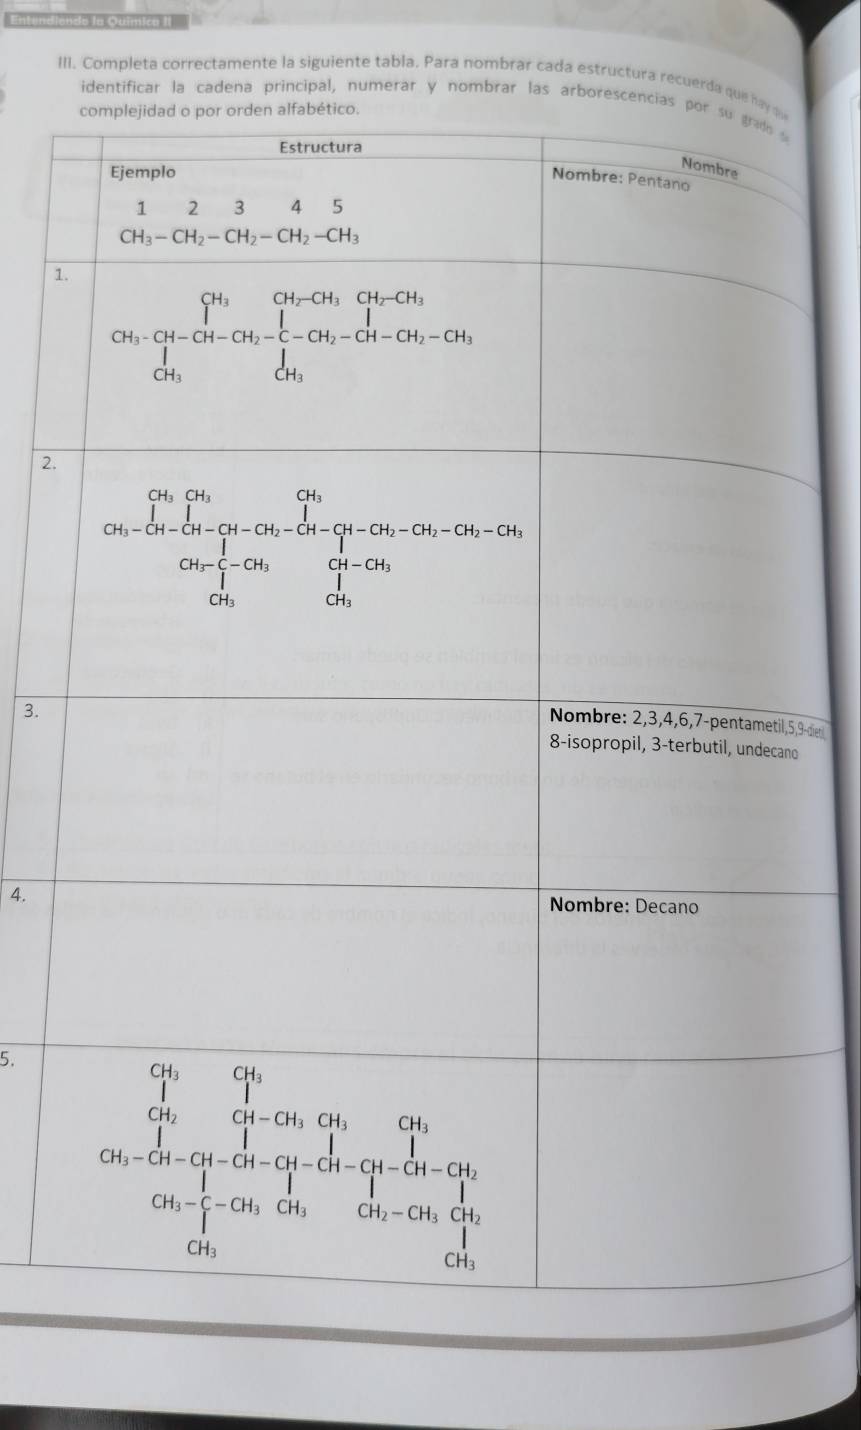 Entendiendo la Química II
III. Completa correctamente la siguiente tabla. Para nombrar cada estructura recuerda que hay que
identificar la cadena principal, numerar y nombrar las arborescencias por su grado de
complejidad o por orden alfabético.
Estructura
Nombre
Ejemplo
Nombre: Pentano
1 2 3 4 5
CH₃ – CH₂ – CH₂ – CH₂ –CH₃
1.
CH₃ CH₂–CH₃ CH₂–CH₃
CH₃ - CH – CH – CH₂ – C – CH₂ – CH – CH₂ – CH₃
CH₃ CH₃
2.
CH₃ CH₃ CH₃
CH₃ – CH – CH – CH – CH₂ – CH – CH – CH₂ – CH₂ – CH₂ – CH₃
CH₃– C – CH₃ CH – CH₃
CH₃ CH₃
3.
Nombre: 2,3,4,6,7-pentametil,5,9-dietil,
8-isopropil, 3-terbutil, undecano
4.
Nombre: Decano
5.
CH₃ CH₃
CH₂ CH – CH₃ CH₃ CH₃
CH₃ – CH – CH – CH – CH – CH – CH – CH – CH₂
CH₃ – C – CH₃ CH₃ CH₂ – CH₃ CH₂
CH₃ CH₃